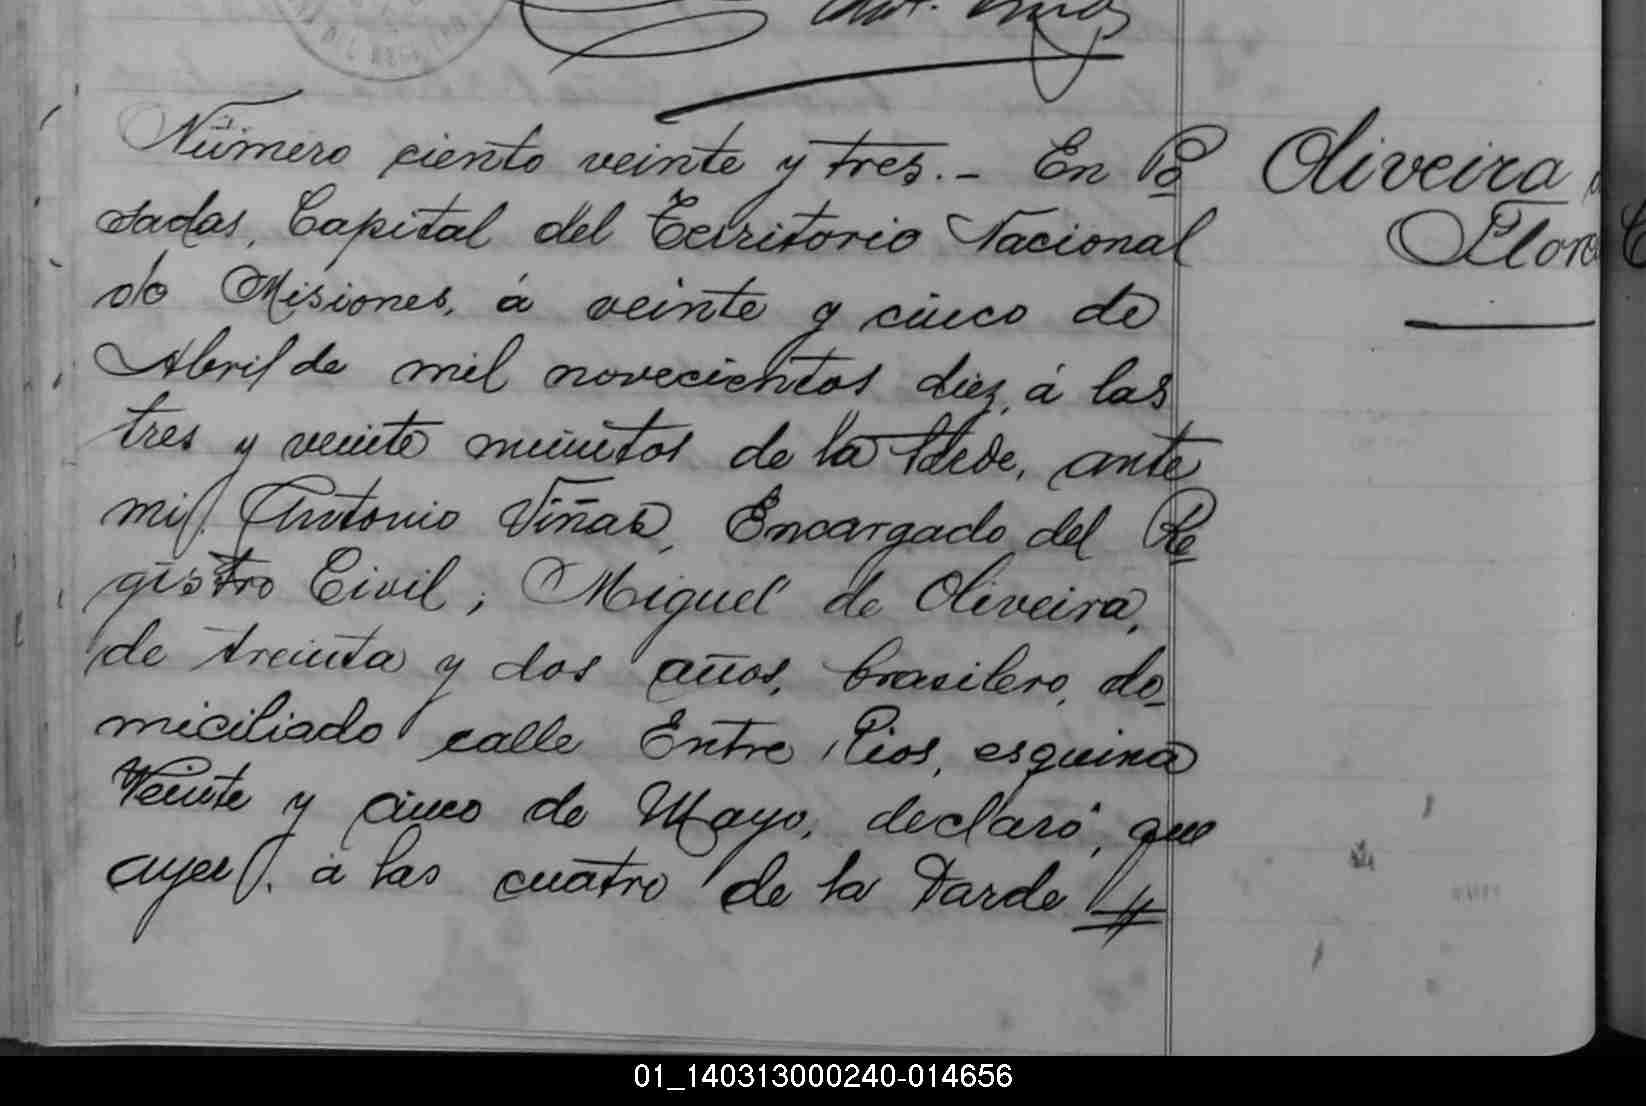 Número ciento veinte y tres.- En Po
sadas, Capital del Territorio Nacional
de Misiones, á veinte y cinco de
Abril de mil novecientos diez, á las
tres y veinte minutos de la tarde, ante
mi, Antonio Viñas, Encargado del Re
gistro Civil; Miguel de Oliveira,
de treinta y dos años, brasilero, do_
miciliado calle Entre Rios, esquina
Veinte y cinco de Mayo, declaró, que
ayer, á las cuatro de la tarde
Oliveira
01_140313000240-014656